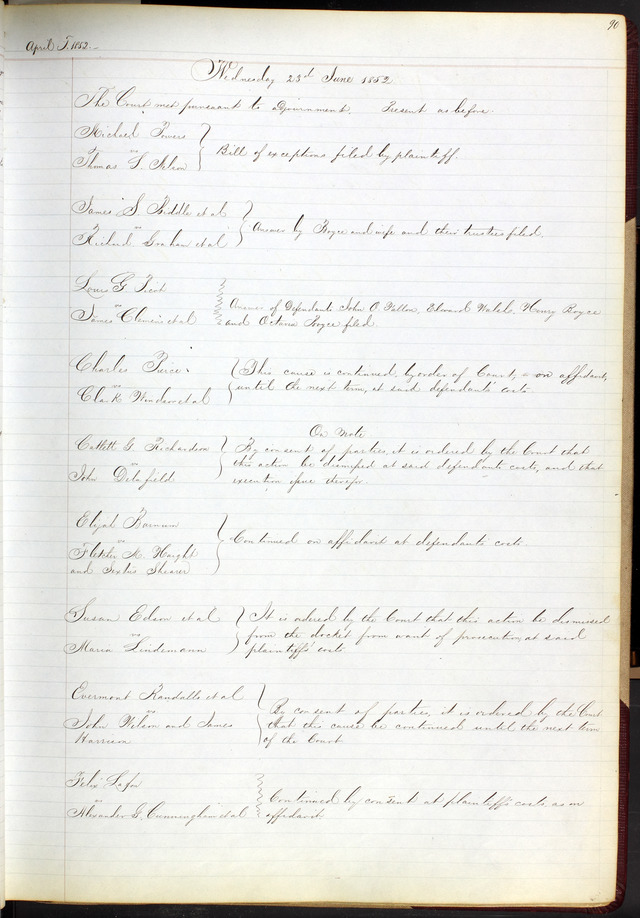 90
April T. 1852.
Wednesday 23rd June 1852
The Court met pursuant to adjournment. Present as before.
Michael Powers
vs
Thomas L.
Bill of exceptions filed by plaintiff.
James S. Biddle et al
vs
Richard Graham et al
Answer by Boyce and wife and their trustees filed.
Louis G. Picot
vs
James Clemens et al
Answer of Defendants John O. Fallon, Edward Walsh, Henry Boyce
and Octavia Boyce filed.
Charles Pierce
vs
Clark et al
This cause is continued by order of Court, on affidavit,
until the next term, at said defendants' costs.
On Note
Catlett G. Richardson
vs
John Delafield
By consent of parties, it is ordered by the Court that
this action be dismissed at said defendants costs, and that
execution issue therefor.
Elijah Barnum
vs
Fletcher M. Haight
and Sextus Shearer
Continued on affidavit at defendants costs.
Susan Edson et al
vs
Maria Lindemann
It is odered by the Court that this action be dismissed
from the docket from want of prosecution, at said
plaintiffs' costs
Evermont Randalls et al
vs
John Wilson and James
Harrison
By consent of parties, it is ordered by the Court
that this cause be continued until the next term
of the Court.
Felix Lafon
vs
Alexander G. Cunningham et al
Continued by consent at plaintiffs costs as on
affidavit